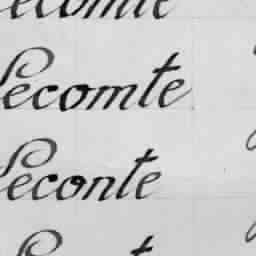 Lecomte
Lecomte
Leconte